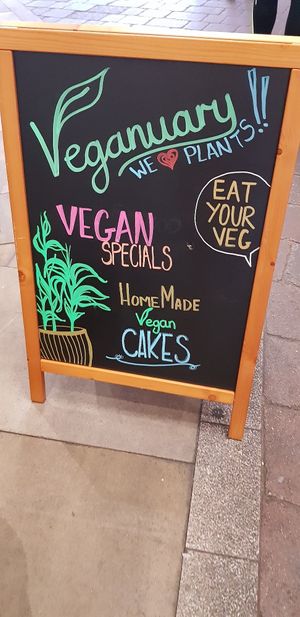 Veganuary!!
WE ♥ PLANTS
EAT
YOUR
VEG
VEGAN
SPECIALS
HOMEMADE
Vegan
CAKES